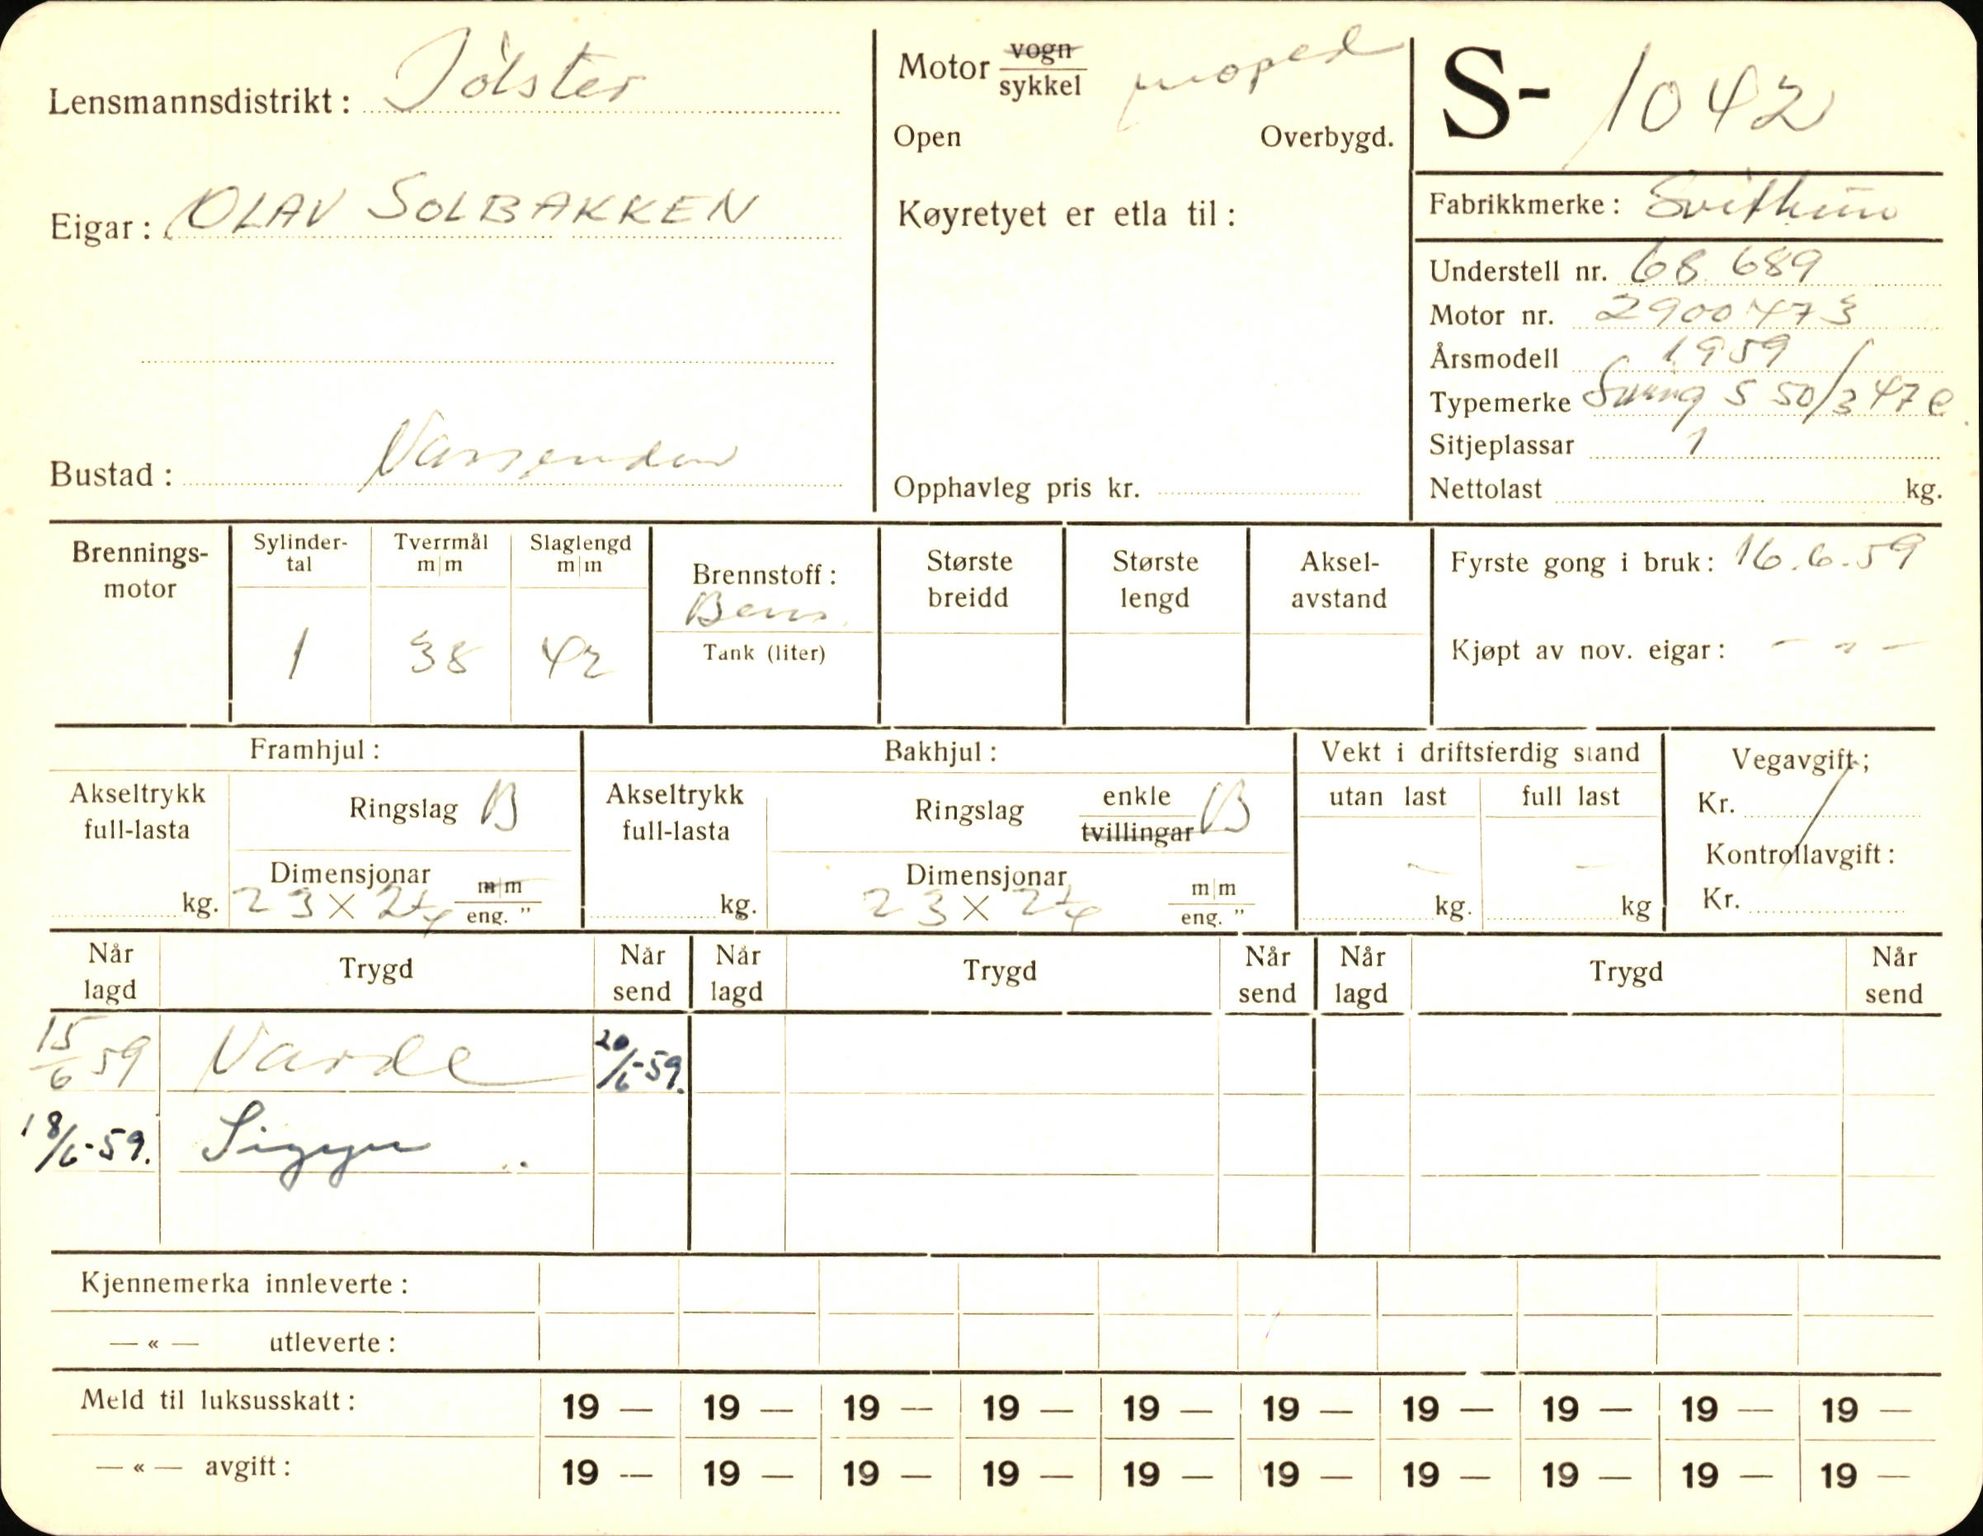 Lensmannsdistrikt: Jølster
Eigar: OLAV SOLBAKKEN
Bustad: Vassenden
Motor vogn/sykkel moped
Open Overbygd.
Køyretyet er etla til:
Opphavleg pris kr.
S- 1042
Fabrikkmerke: Svithun
Understell nr. 68 689
Motor nr. 2900473
Årsmodell 1959
Typemerke Swing S 50/3 47 e
Sitjeplassar 1
Nettolast kg.
Brennings-
motor
Sylinder-
tal
1
Tverrmål
m/m
38
Slaglengd
m/m
42
Brennstoff:
Bens.
Tank (liter)
Største
breidd
Største
lengd
Aksel-
avstand
Fyrste gong i bruk: 16.6.59
Kjøpt av nov. eigar: - " -
Framhjul:
Akseltrykk
full-lasta
kg.
Ringslag B
Dimensjonar
23 x 2 1/4 m/m
eng. "
Bakhjul:
Akseltrykk
full-lasta
kg.
Ringslag enkle/tvillingar B
Dimensjonar
23 x 2 1/4 m/m
eng. "
Vekt i driftsferdig stand
utan last full last
- -
kg. kg
Vegavgift;
Kr.
Kontrollavgift:
Kr.
Når
lagd
Trygd
Når
send
Når
lagd
Trygd
Når
send
Når
lagd
Trygd
Når
send
15/6 59 Varde 20/6-59.
18/6-59. Sigyn
Kjennemerka innleverte:
— « — utleverte:
Meld til luksusskatt: 19 — 19 — 19 — 19 — 19 — 19 — 19 — 19 — 19 — 19 —
— « — avgift: 19 — 19 — 19 — 19 — 19 — 19 — 19 — 19 — 19 — 19 —